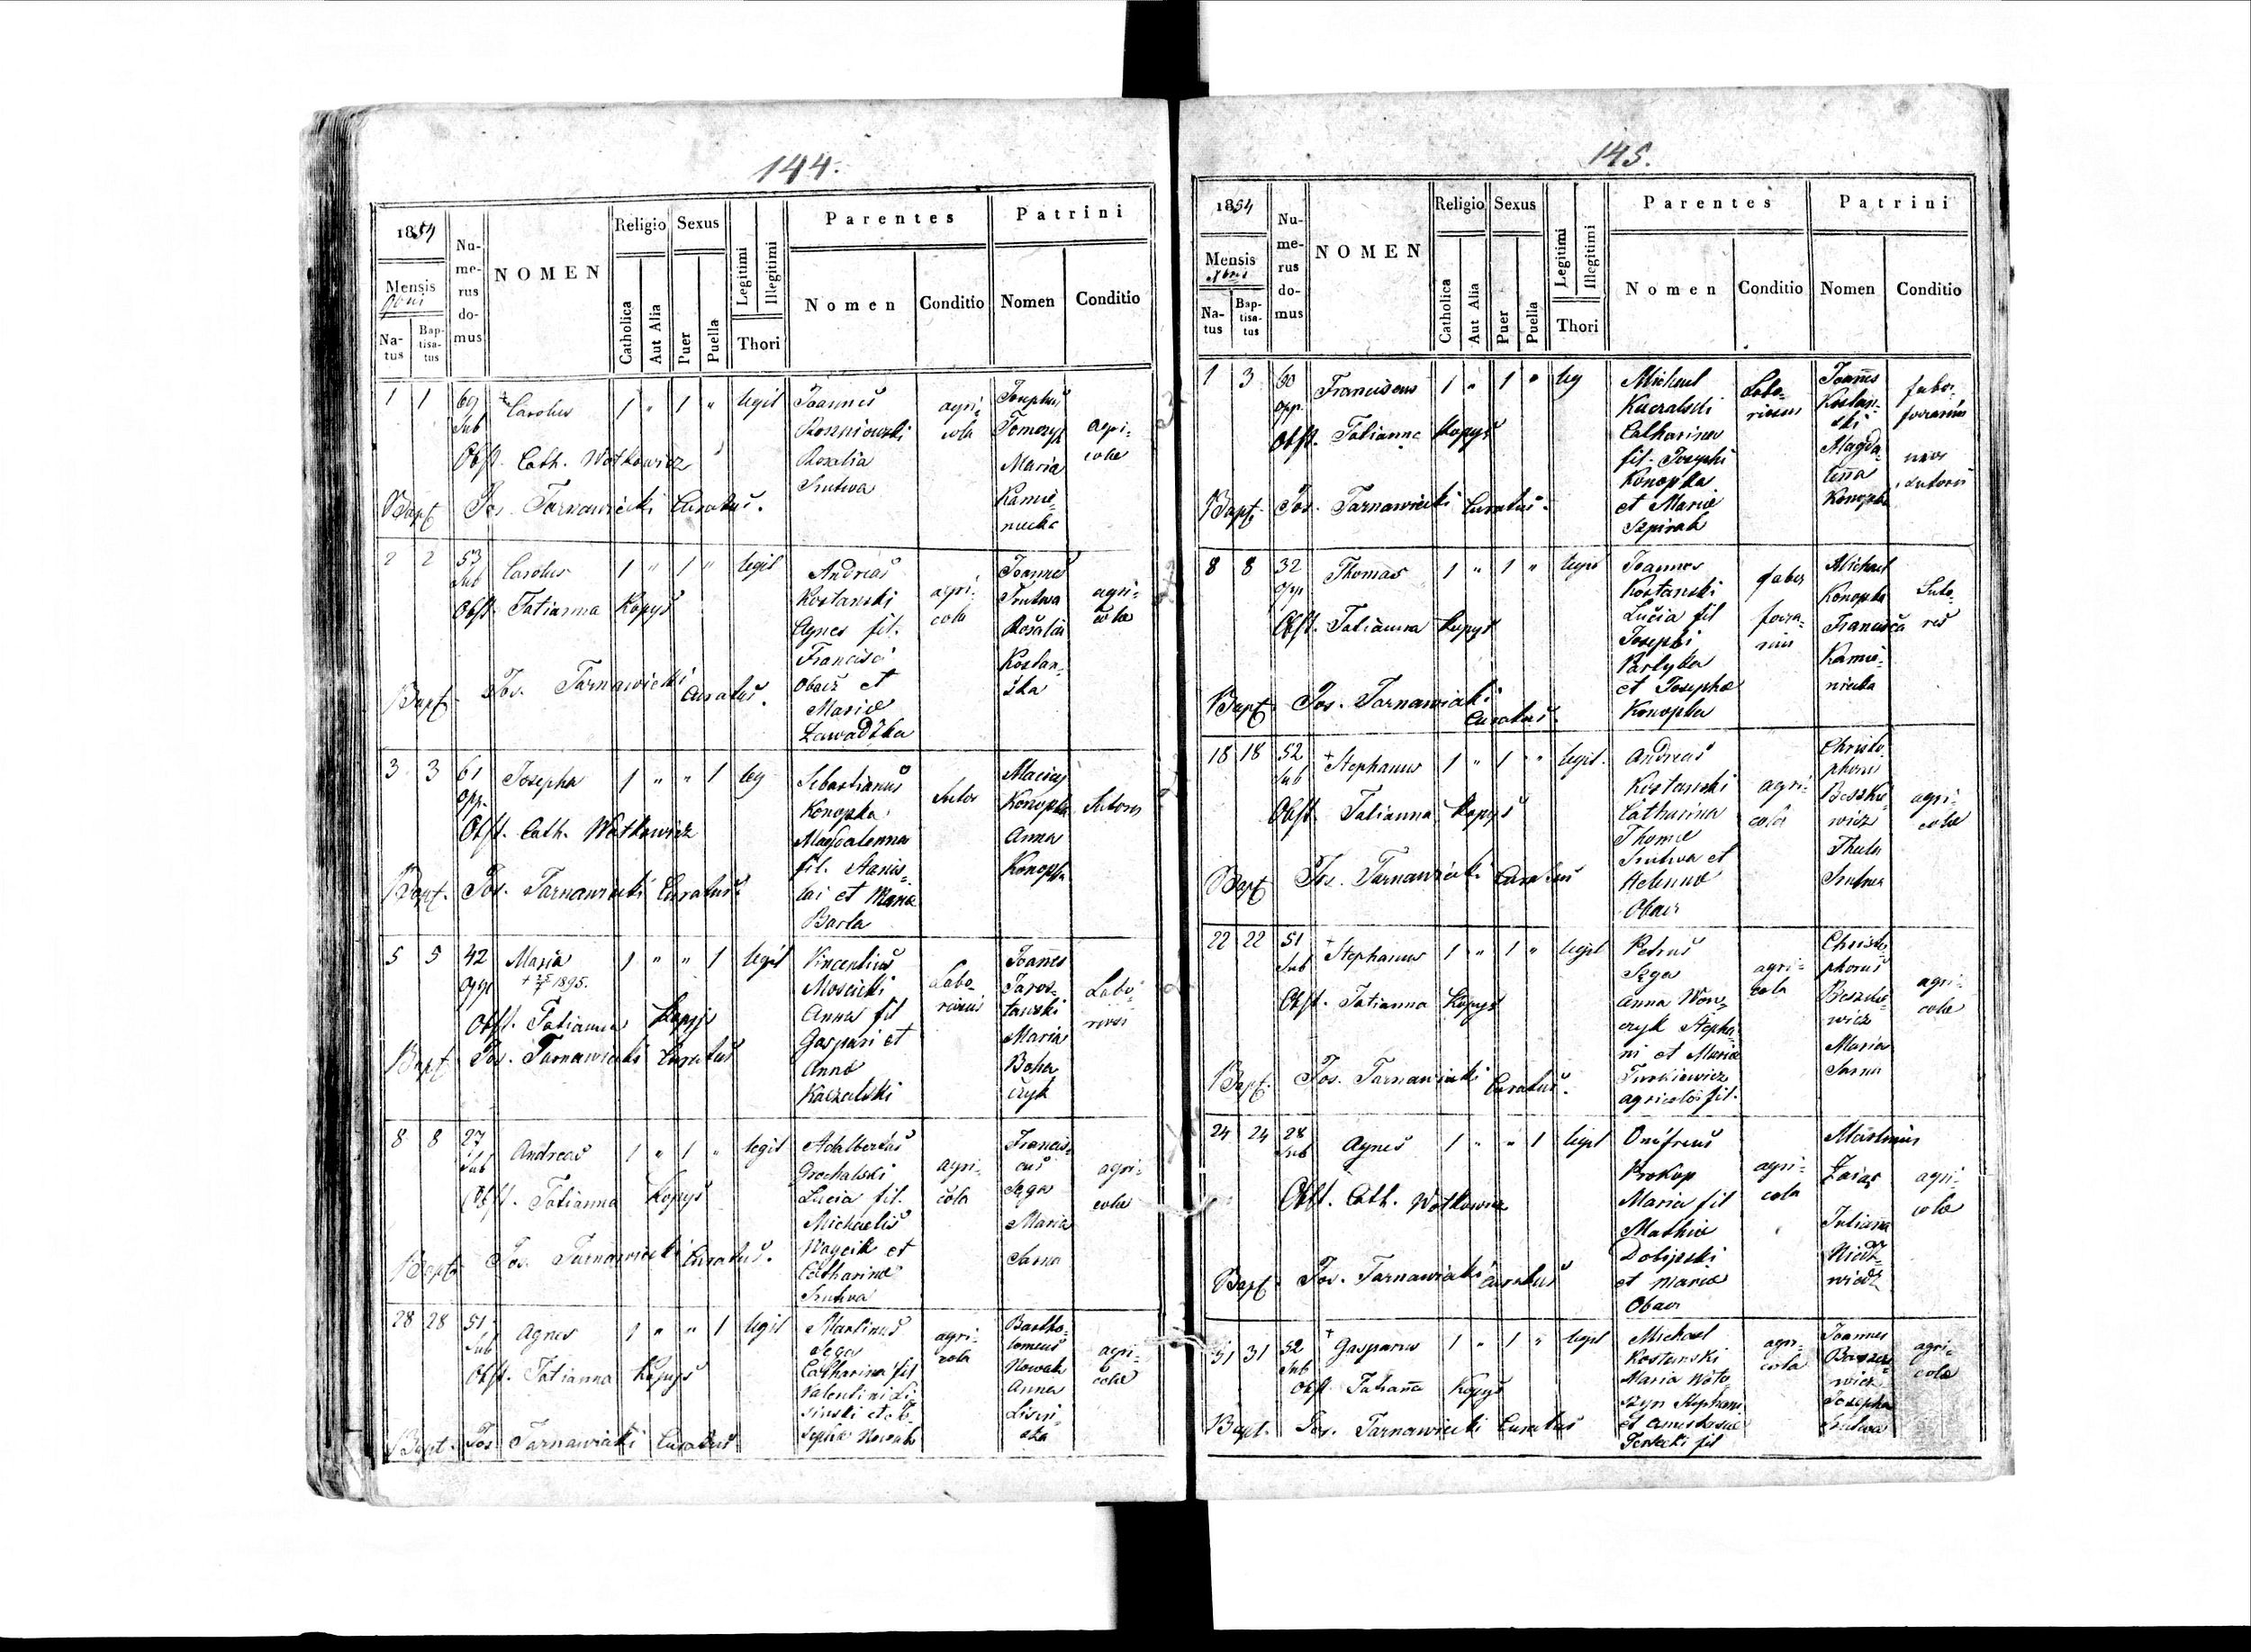 144.
1854
Mensis
Obris
Natus
Baptisatus
Numerus domus
NOMEN
Religio
Catholica
Aut Alia
Sexus
Puer
Puella
Legitimi
Illegitimi
Thori
Parentes
Nomen
Conditio
Patrini
Nomen
Conditio
1 1 69 Carolus 1 " 1 " legit Joannes
Sub
agricola
Rosalia
Srutwa
Josephus
Tomczyk
Maria
Kamienecka
agricolae
Obst. Cath. Wotkowicz
Bapt Jos. Tarnawiecki Curatus.
2 2 53 Carolus 1 " 1 " legit Andreas
Sub
Kostanski
Agnes fil.
Francisci
Obacz et
Mariae
Zawadzka
agricola
Joannes
Srutwa
Rosalia
Kostanska
agricolae
Obst. Tatianna Kopys
Bapt. Jos. Tarnawiecki Curatus.
3 3 61 Josepha 1 " " 1 leg Sebastianus
opp.
Konopka
Magdalenna
fil. Stanislai et Maria
Barla
Sutor
Maciej
Konopka
Anna
Konopka
Sutores
Obst. Cath. Wotkowicz
Bapt. Jos. Tarnawiecki Curatus.
5 5 42 Maria 1 " " 1 legit Vincentius
opp
1895.
Moscicki
Anna fil
Gaspari et
Anna
Kaczalski
Laboriosus
Joannes
Jarostawski
Maria
Bohaczyk
Laboriosi
Obst. Tatianna Kopys
Bapt Jos. Tarnawiecki Curatus
8 8 27 Andreas 1 " 1 " legit Adalbertus
Sub
Grochalski
Lucia fil.
Michaelis
Waycik et
Catharina
Srutwa
agricola
Franciscus
Sega
Maria
Sarna
agricolae
Obst. Tatianna Kopys
Bapt Jos. Tarnawiecki Curatus.
28 28 51 Agnes 1 " " 1 legit Martinus
Sub
Sega
Catharina fil
Valentini Lisinski et
Nowak
agricola
Bartholomeus
Nowak
Anna
Lisinska
agricolae
Obst. Tatianna Kopys
Bapt. Jos Tarnawiecki Curatus
145.
1854
Mensis
Natus
Baptisatus
Numerus domus
NOMEN
Religio
Catholica
Aut Alia
Sexus
Puer
Puella
Legitimi
Illegitimi
Thori
Parentes
Nomen
Conditio
Patrini
Nomen
Conditio
1 3 60 Franciscus 1 " 1 " leg Michael
opp.
Kaczalski
Catharina
fil. Josephi
Konopka
et Mariae
Szpirak
Laboriosus
Joannes
Kostanski
Magdalenna
Konopka
faber
ferrarius
sutoris
Obst. Tatianna Kopys
Bapt. Jos. Tarnawiecki Curatus.
8 8 32 Thomas 1 " 1 " legit Joannes
opp
Kostanski
Lucia fil
Josephi
Partyka
et Josepha
Konopka
faber
ferrarius
Michael
Konopka
Francisca
Kamieniecka
Sutores
Obst. Tatianna Kopys
Bapt. Jos. Tarnawiecki Curatus.
18 18 52 Stephanus 1 " 1 " legit. Andreas
Sub
Kostanski
Catharina
Thomae
Srutwa et
Helenna
Obacz
agricola
Christophorus
Thecla
Srutwa
agricolae
Obst. Tatianna Kopys
Bapt Jos. Tarnawiecki Curatus
22 22 51 Stephanus 1 " 1 " legit Petrus
Sub
Sega
Anna Wonczyk Stephani et Mariae
Turkiewicz
agricolae fil.
agricola
Christophorus
Maria
Sarna
agricolae
Obst. Tatianna Kopys
Bapt. Jos. Tarnawiecki Curatus.
24 24 28 Agnes 1 " " 1 legit Onifreus
Sub
Prokop
Maria fil
Mathiae
Dolipski
et Mariae
Obacz
agricola
Martinus
Zaiac
Julianna
Niedzwiedz
agricolae
Obst. Cath. Wotkowicz
Bapt. Jos. Tarnawiecki Curatus
31 31 52 Gasparus 1 " 1 " legit Michael
Sub
Kostanski
Maria
fil
agricola
Joannes
Josepha
Srutwa
agricolae
Obst Tatianna Kopys
Bapt. Jos. Tarnawiecki Curatus